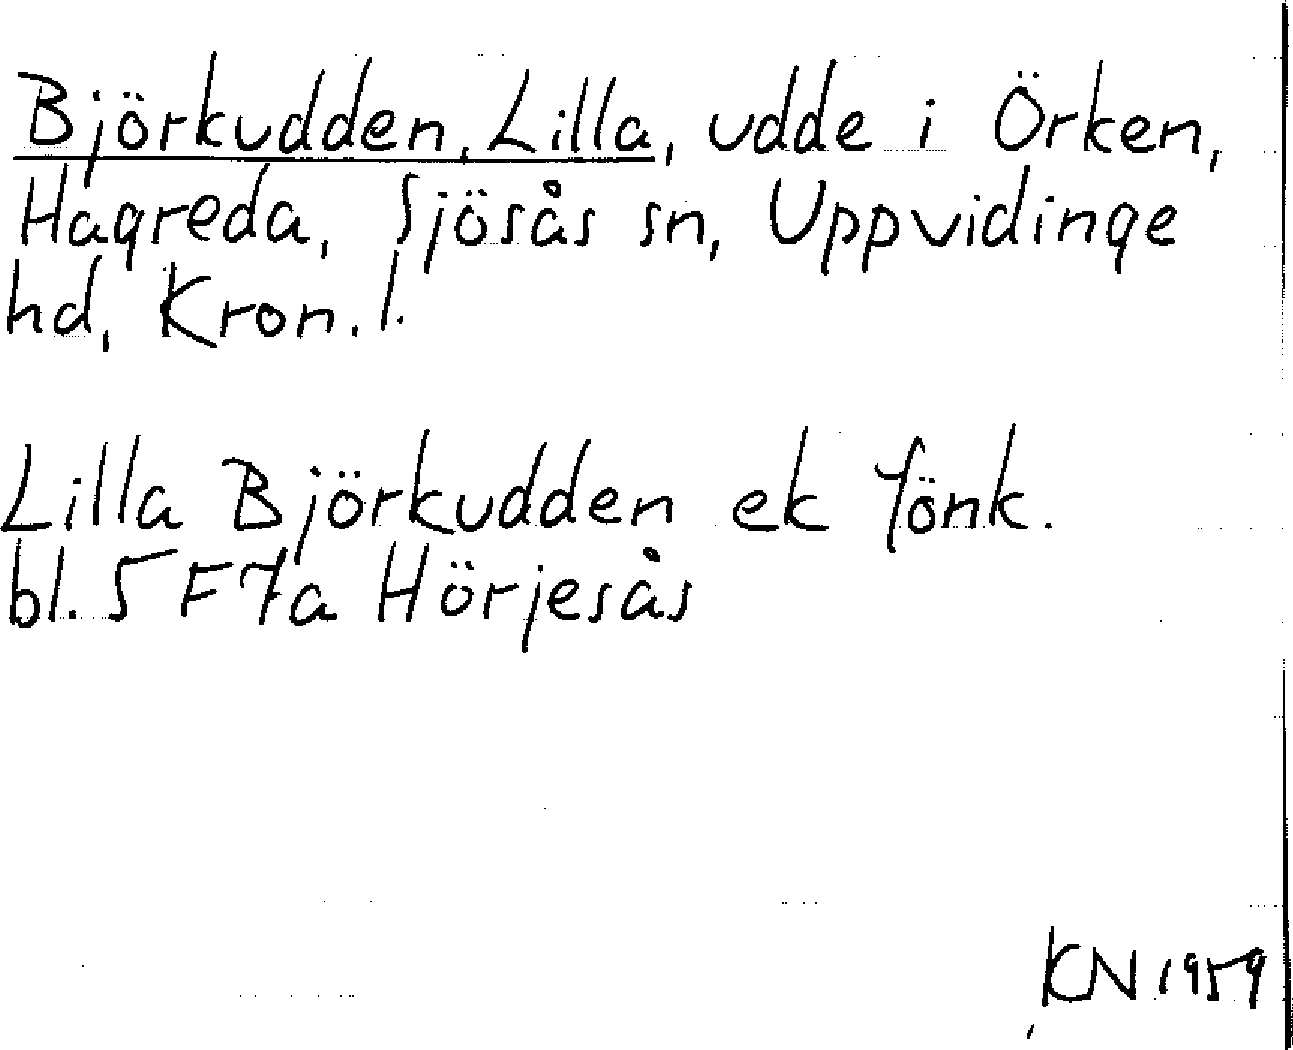 Björkudden, Lilla, udde i Örken,
Hagreda, Sjösås sn, Uppvidinge
hd, Kron. l.
Lilla Björkudden ek fönk.
bl. 5 F 7a Hörjesås
KN 1959